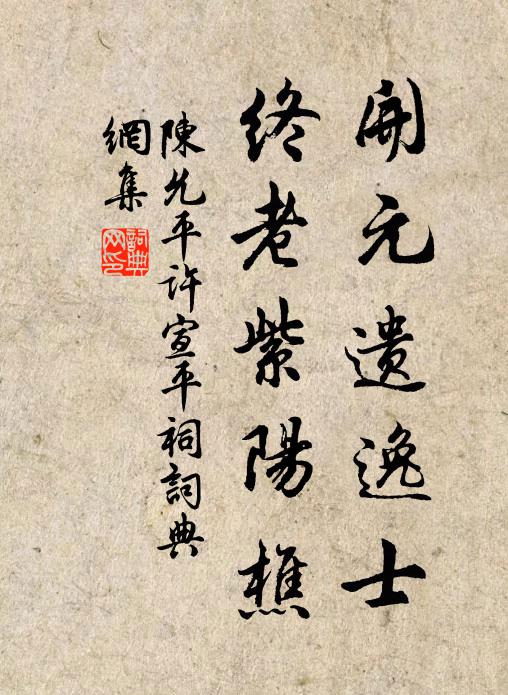 開元遺逸士
終老紫陽樵
陳允平許宣平祠詞典
網集
詞典
网印